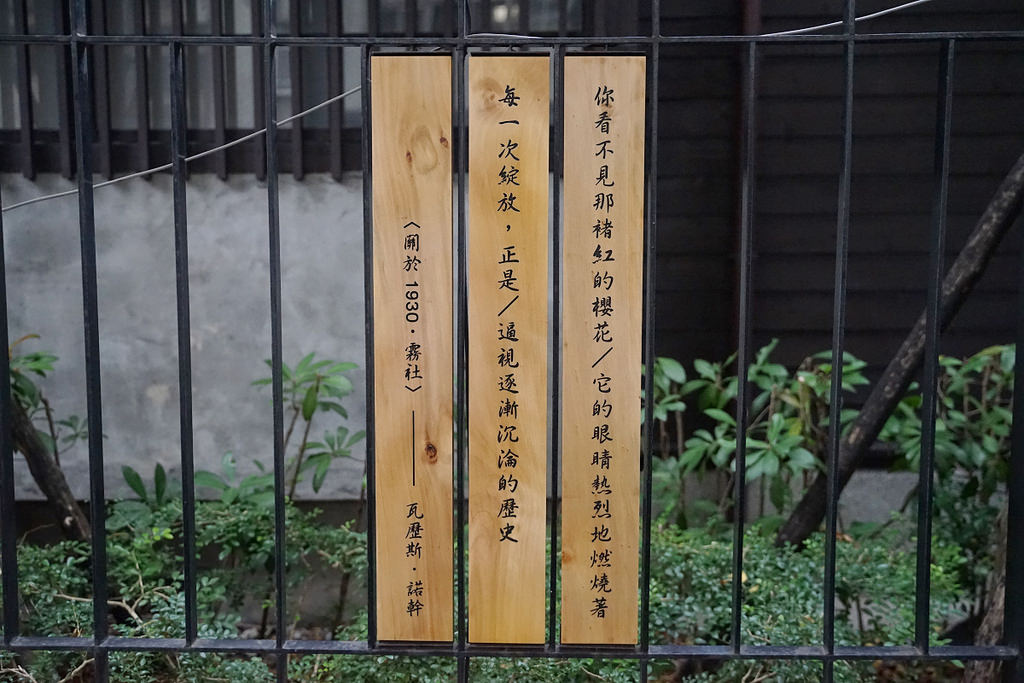 你看不見那褚紅的櫻花／它的眼睛熱烈地燃燒著
每一次綻放，正是／逼視逐漸沉淪的歷史
〈關於1930·霧社〉——瓦歷斯·諾幹